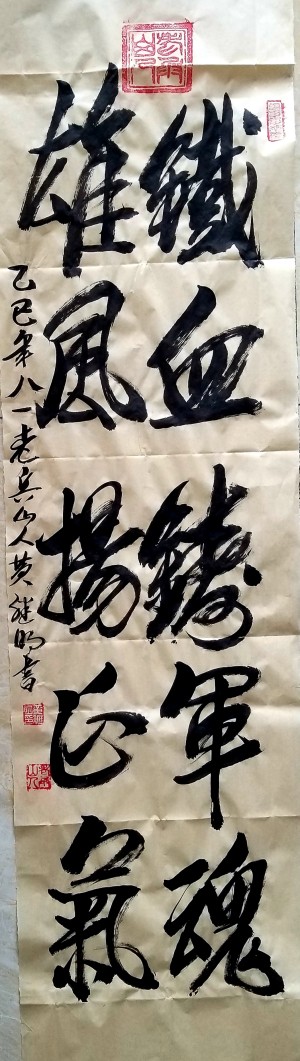 鐵血鑄軍魂
雄風揚正氣
乙巳年八一老兵山人黄继明書